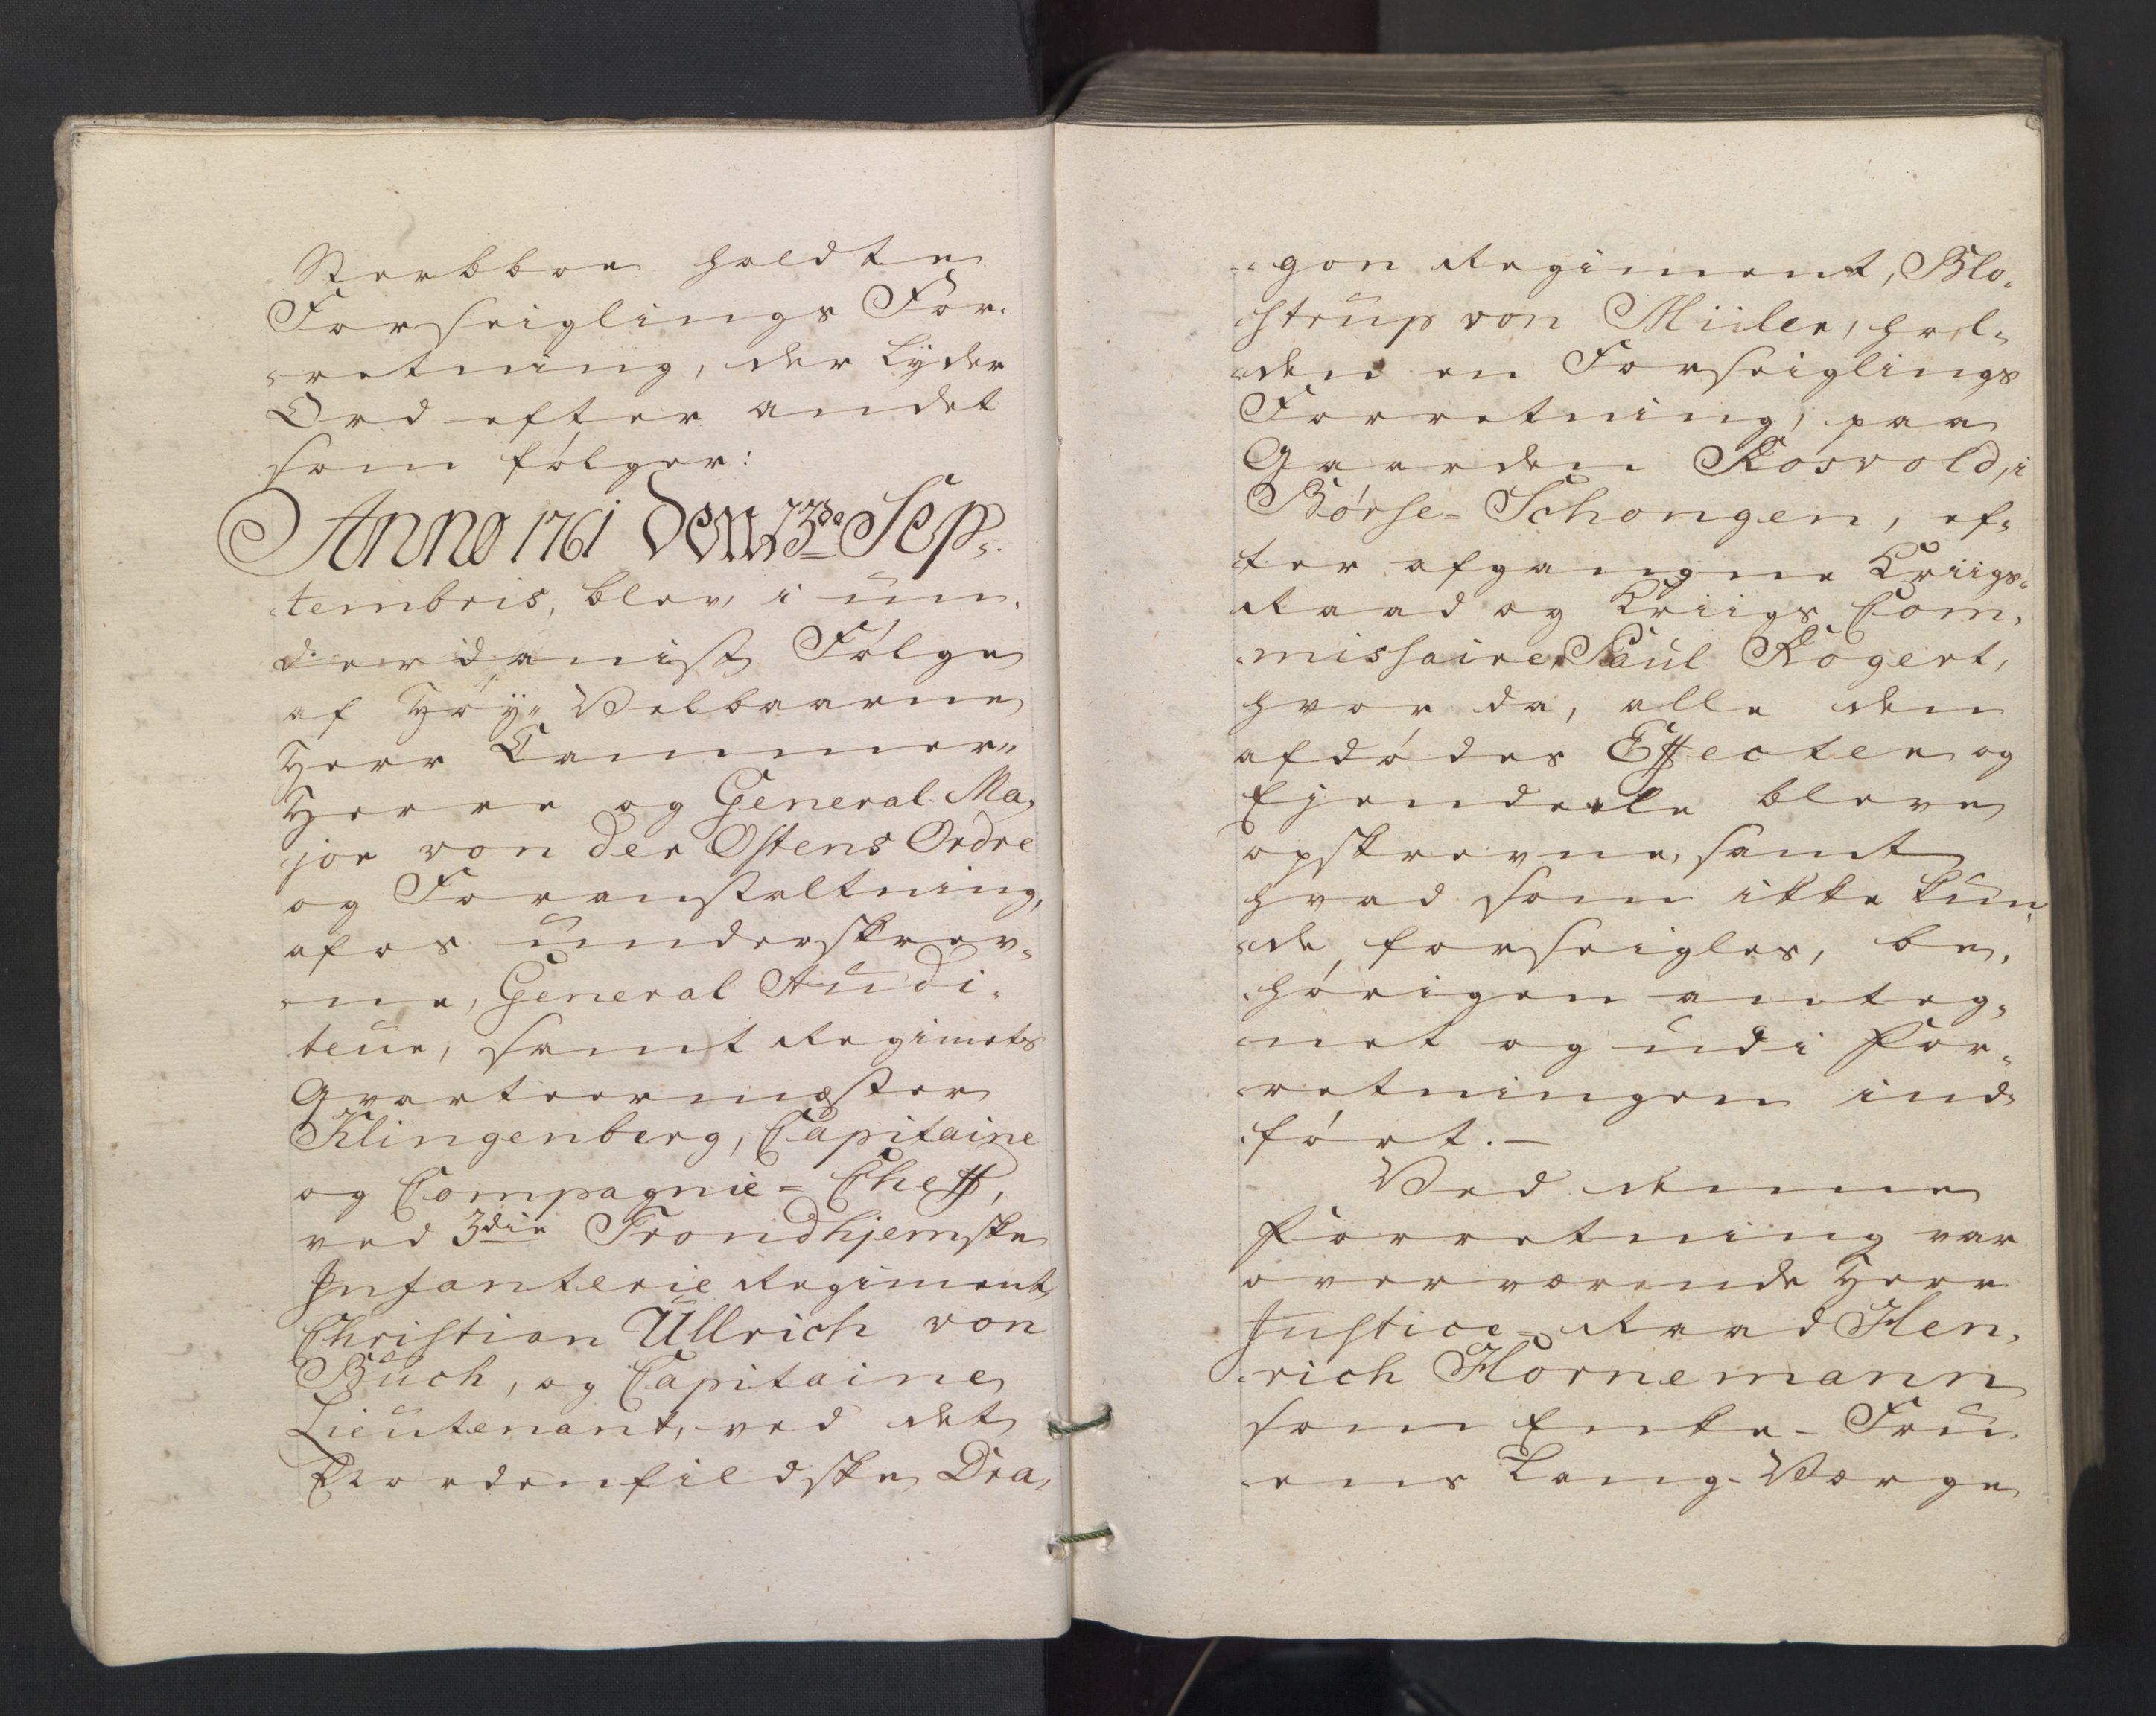 Sterbboe holdte
Forseiglings For-
-retning, der lyder
Ord efter andet
som følger:
Anno 1761 den 13de Sep-
-tembris, blev, i un-
derdanigst Følge
af Høy-Velbaarne
Herr Cammer-
Herre og General-Ma-
-jor von der Ostens Ordre
og Foranstaltning,
af os underskrev-
-ne, General Audi-
teur, samt Regimets
Qvarteermester
Klingenberg, Capitaine
og Compagnie-Cheff,
ved 3die Trondhjemske
Infanterie Regiment,
Christian Ullrich von
Buch, og Capitaine
Lieutenant, ved det
Nordenfieldske Dra-
-gon Regiment, Blo-
-strup von Müler, hol-
-den en Forseiglings
Forretning, paa
Gaarden Rosvold, i
Børse-Schongen, ef-
-ter afgangne Kriigs-
Raad og Kriigs Com-
-missaire Paul Rogert,
hvor da, alle den
afdødes Effecter og
Ejendeele bleve
opskrevne, samt
hvad som ikke kun-
-de forseigles, be-
-hørigen anteg-
-net og udi For-
-retningen ind-
-ført. -
Ved denne
Forretning var
overværende Herr
Justice-Raad Hen-
-rich Hornemann
som Enke-Fru-
-ens Laug-Værge